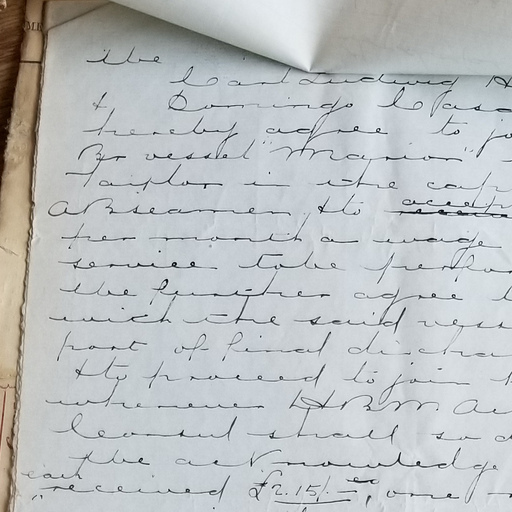 We
Carl Ludwig H
& Domingo Casa
hereby agree to jo
Br vessel "Marion"
Taylor in the cap
ABseamen, & to accep
per month a wage
service to be perfor
We further agree t
with the said vess
port of final discha
& to proceed to join
whenever HBM Ac
Consul shall so d
We acknowledge
each
received £2.15/- , one